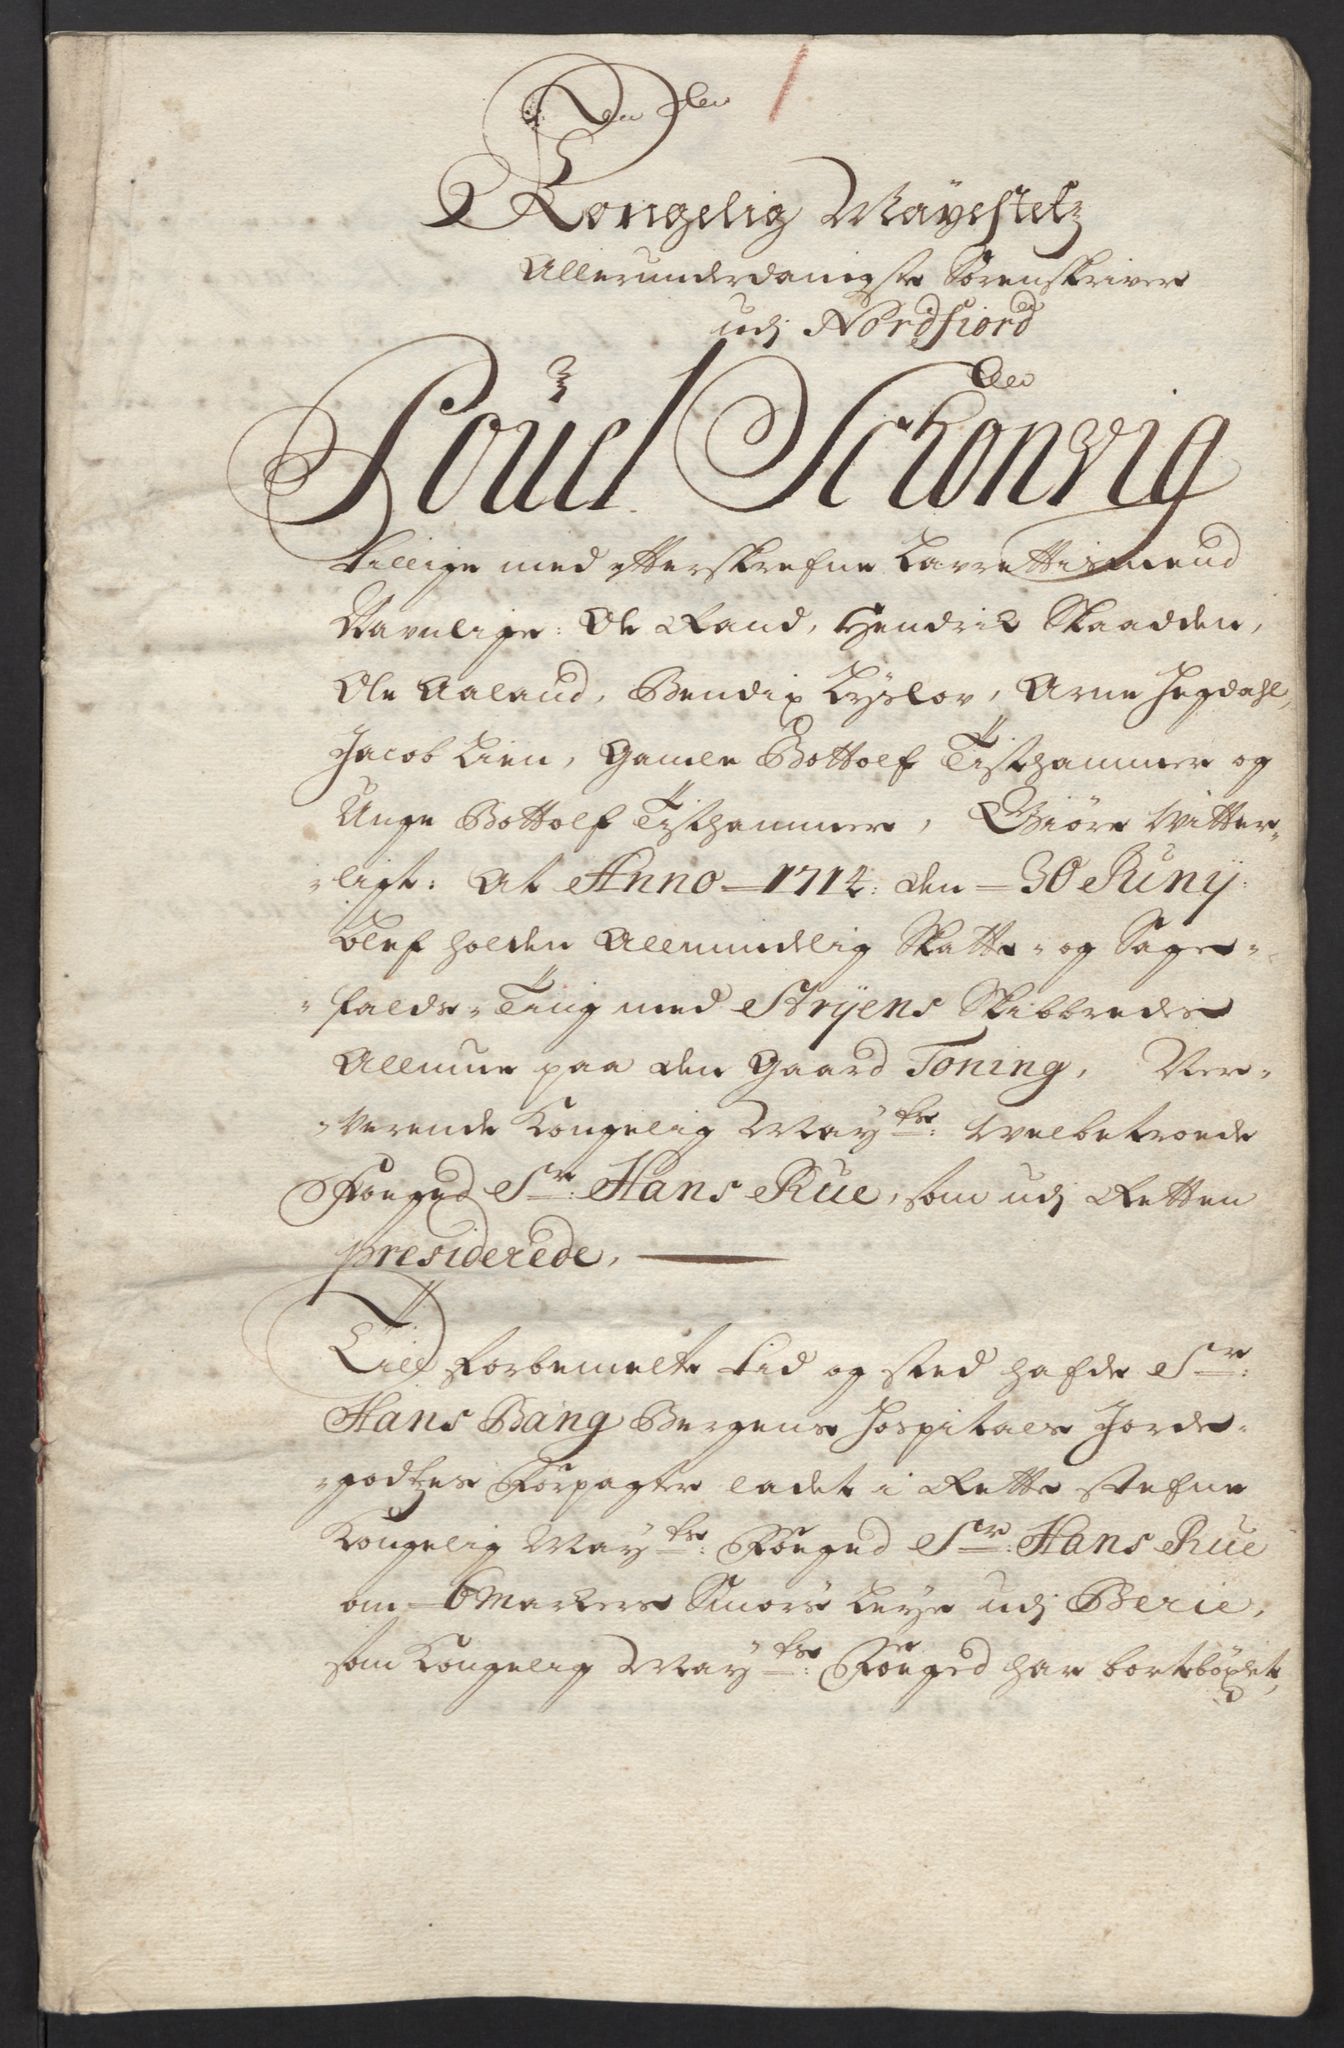 Kongelig Maÿestetz
Allerunderdanigste Sorenskriver
udj Nordfiord
Pouel Schonvig
Tillige med efterskrefne Lavrettismend
Navnlige: Ole Rand, Hendrik Skaadden,
Ole Aaland, Bendix Lÿslov, Arne Hegdahl,
Jacob Lien, Gamle Bottolf Tisthammer og
Unge Bottolf Tisthammer, Giöre Vitter-
-ligt: At Anno 1714: den 30 Junÿ:
blef holden Allmindelig Skatte- og Sage-
-falds-Ting med Strÿens Skibbredes
Allmue paa den Gaard Toning, Ner-
-verende Kongelig Maÿts: Welbetroede
Foeged Sr: Hans Rue, som udj Retten
presiderede.
Till forbemelte tid og sted hafde Sr:
Hans Bang Bergens Hospitals Jorde-
-godtzes Forpagter ladet i Rette stefne
Kongelig Maÿts: Foeged Sr: Hans Rue
om 6 Markers Smörs Leÿe udj Berie,
som Kongelig Maÿts: Foeged har bortböxlet,